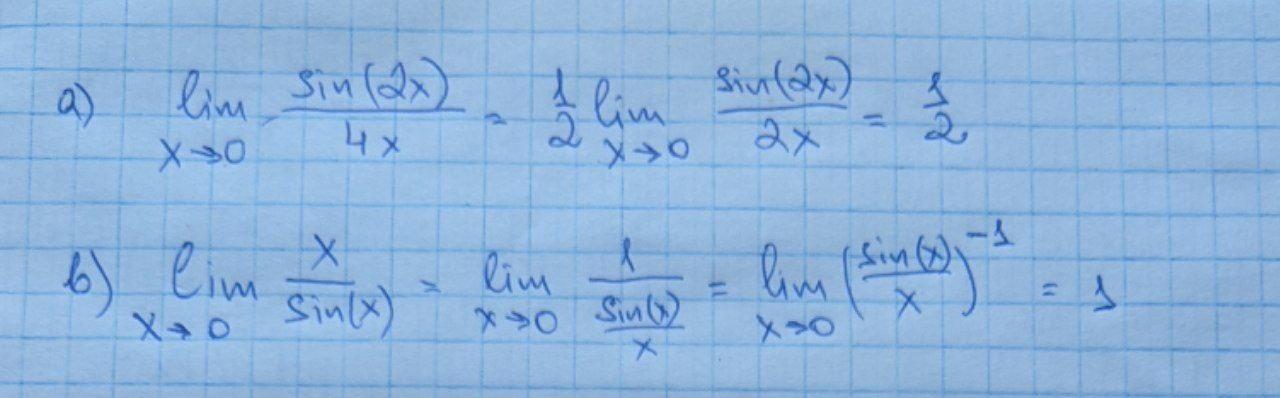 a) lim x→0 sin(2x)/4x = 1/2 lim x→0 sin(2x)/2x = 1/2
b) lim x→0 x/sin(x) = lim x→0 1/(sin(x)/x) = lim x→0 (sin(x)/x)^-1 = 1